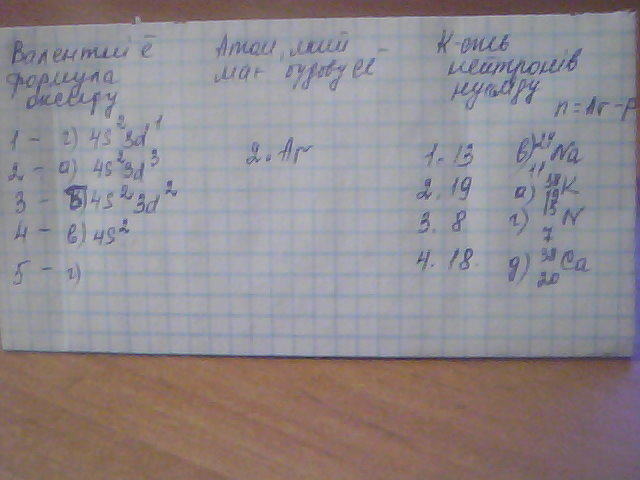 Валентні ē
формула
оксиру
1 - г) 4s² 3d¹
2 - а) 4s² 3d³
3 - б) 4s² 3d²
4 - в) 4s²
5 - г)
Атом, який
має будову ē
2. Ar
К-сть
нейтронів
нукліду
n = Ar - p
1. 13 в) ²⁴₁₁Na
2. 19 а) ³⁸₁₉K
3. 8 г) ¹⁵₇N
4. 18. д) ³⁸₂₀Ca